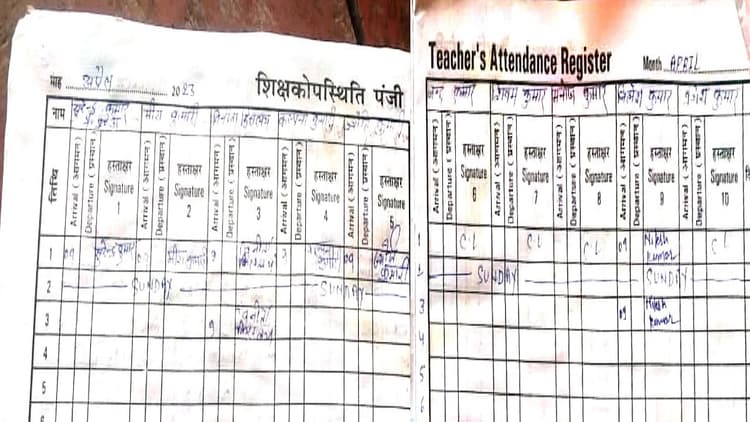 माह अप्रैल 2023
शिक्षकोपस्थिति पंजी
नाम सुरेन्द्र कुमार मीरा कुमारी कल्पना कुमारी
तिथि Arrival (आगमन) Departure (प्रस्थान) हस्ताक्षर Signature 1 Arrival (आगमन) Departure (प्रस्थान) हस्ताक्षर Signature 2 Arrival (आगमन) Departure (प्रस्थान) हस्ताक्षर Signature 3 Arrival (आगमन) Departure (प्रस्थान) हस्ताक्षर Signature 4 Arrival (आगमन) Departure (प्रस्थान) हस्ताक्षर Signature 5
1 09 सुरेन्द्र कुमार मीरा कुमारी 9 09
2 SUNDAY SUNDAY
3 9
4
5
6
Teacher's Attendance Register Month APRIL
कुमार शिवम कुमार मनोज कुमार निलेश कुमार कुमार
Arrival (आगमन) Departure (प्रस्थान) हस्ताक्षर Signature 6 Arrival (आगमन) Departure (प्रस्थान) हस्ताक्षर Signature 7 Arrival (आगमन) Departure (प्रस्थान) हस्ताक्षर Signature 8 Arrival (आगमन) Departure (प्रस्थान) हस्ताक्षर Signature 9 Arrival (आगमन) Departure (प्रस्थान) हस्ताक्षर Signature 10
1 CL CL CL 09 Nilesh Kumar CL
2 SUNDAY SUNDAY
3 09 Nilesh Kumar
4
5
6